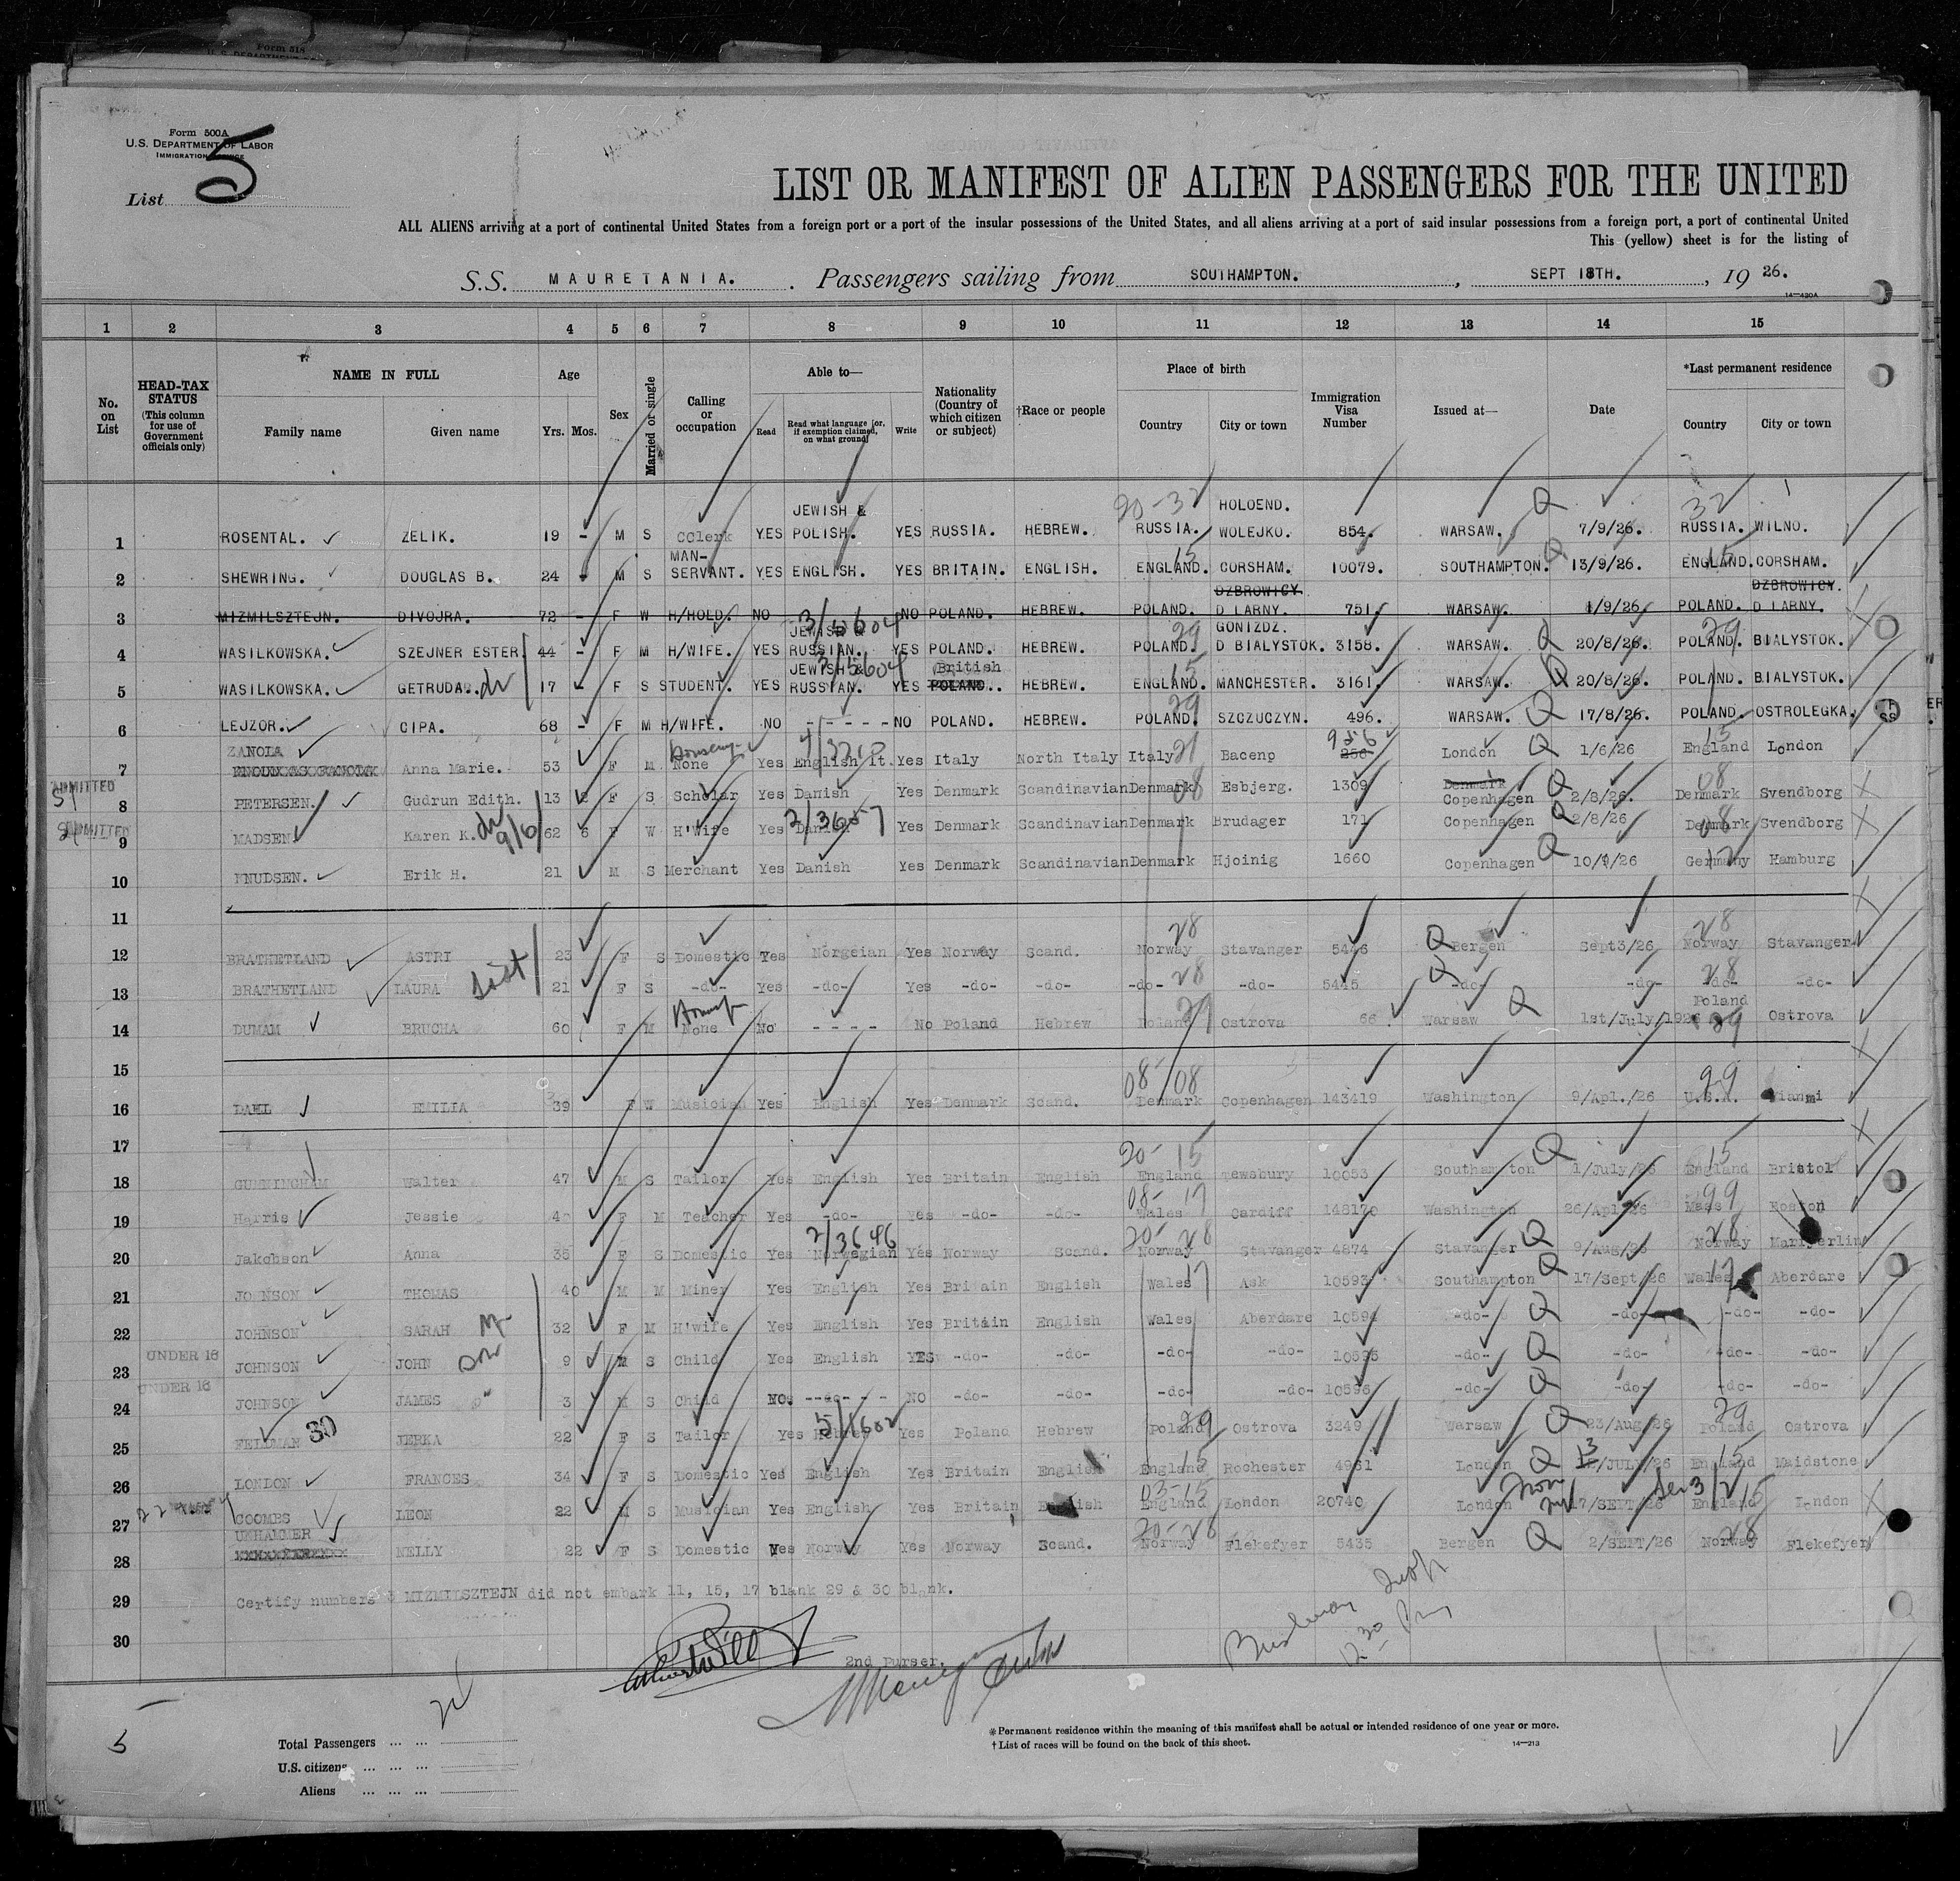 Form 500A
U.S. DEPARTMENT OF LABOR
IMMIGRATION SERVICE
List 5
LIST OR MANIFEST OF ALIEN PASSENGERS FOR THE UNITED
ALL ALIENS arriving at a port of continental United States from a foreign port or a port of the insular possessions of the United States, and all aliens arriving at a port of said insular possessions from a foreign port, a port of continental United
This (yellow) sheet is for the listing of
S.S. MAURETANIA. Passengers sailing from SOUTHAMPTON. , SEPT 18TH. , 19 26.
14—430A
1 2 3 4 5 6 7 8 9 10 11 12 13 14 15
No. on List
HEAD-TAX STATUS (This column for use of Government officials only)
NAME IN FULL
Family name Given name
Age
Yrs. Mos.
Sex
Married or single
Calling or occupation
Able to—
Read Read what language [or, if exemption claimed, on what ground] Write
Nationality (Country of which citizen or subject)
†Race or people
Place of birth
Country City or town
Immigration Visa Number
Issued at—
Date
*Last permanent residence
Country City or town
1 ROSENTAL. ZELIK. 19 - M S CClerk YES JEWISH & POLISH. YES RUSSIA. HEBREW. 20-32 RUSSIA. HOLOEND. WOLEJKO. 854. WARSAW. Q 7/9/26. 32 RUSSIA. WILNO.
2 SHEWRING. DOUGLAS B. 24 - M S MAN-SERVANT. YES ENGLISH. YES BRITAIN. ENGLISH. 15 ENGLAND. CORSHAM. 10079. SOUTHAMPTON. Q 13/9/26. 15 ENGLAND. CORSHAM.
3 MIZMILSZTEJN. DIVOJRA. 72 - F W H/HOLD. NO NO POLAND. HEBREW. POLAND. DZBROWICY. D LARNY. 751. WARSAW. 1/9/26. POLAND. DZBROWICY. D LARNY.
4 WASILKOWSKA. SZEJNER ESTER 44 - F M H/WIFE. YES JEWISH & RUSSIAN. 3/5604 YES POLAND. HEBREW. 29 POLAND. GONIZDZ. D BIALYSTOK. 3158. WARSAW. Q 20/8/26. 29 POLAND. BIALYSTOK.
5 WASILKOWSKA. GETRUDA. 17 - F S STUDENT. YES JEWISH & RUSSIAN. 3/5604 YES British POLAND. HEBREW. 15 ENGLAND. MANCHESTER. 3161. WARSAW. Q 20/8/26. POLAND. BIALYSTOK.
6 LEJZOR. CIPA. 68 - F M H/WIFE. NO - - - - - NO POLAND. HEBREW. 29 POLAND. SZCZUCZYN. 496. WARSAW. Q 17/8/26. POLAND. OSTROLEGKA.
7 ZANOLA Anna Marie. 53 F M None Yes English It. Yes Italy North Italy Italy 21 Baceno 956 256 London Q 1/6/26 15 England London
ADMITTED
8 PETERSEN. Gudrun Edith. 13 2 F S Scholar Yes Danish Yes Denmark Scandinavian Denmark 08 Esbjerg. 1309 Denmark Copenhagen Q 2/8/26. 08 Denmark Svendborg
ADMITTED
9 MADSEN Karen K. 9/6 62 6 F W H'Wife Yes Danish 2/3657 Yes Denmark Scandinavian Denmark Brudager 171 Copenhagen Q 2/8/26 08 Denmark Svendborg
10 KNUDSEN. Erik H. 21 M S Merchant Yes Danish Yes Denmark Scandinavian Denmark Hjoinig 1660 Copenhagen Q 10/9/26 12 Germany Hamburg
11
12 BRATHETLAND ASTRI 23 F S Domestic Yes Norgeian Yes Norway Scand. 28 Norway Stavanger 5446 Q Bergen Sept3/26 28 Norway Stavanger
13 BRATHETLAND LAURA sist 21 F S -do- Yes -do- Yes -do- -do- -do- 28 -do- 5445 Q -do- -do- 28 -do- -do-
14 DUMAM BRUCHA 60 F M None No - - - - No Poland Hebrew Poland 29 Ostrova 66 Warsaw Q 1st/July/1926 Poland 29 Ostrova
15
16 DAHL EMILIA 39 F W Musician Yes English Yes Denmark Scand. 08-08 Denmark Copenhagen 143419 Washington 9/Apl./26 99 U.S.A. Miammi
17
18 CUNNINGHAM Walter 47 M S Tailor Yes English Yes Britain English 20-15 England Tewsbury 10053 Southampton Q 1/July/26 15 England Bristol
19 Harris Jessie F M Teacher Yes -do- Yes -do- -do- 08-17 Wales Cardiff 146170 Washington 26/Apl/26 99 Mass Boston
20 Jakobson Anna 35 F S Domestic Yes Norwegian 2/3646 Yes Norway Scand. 20-28 Norway Stavanger 4874 Stavanger Q 9/Aug/26 28 Norway
21 JOHNSON THOMAS 40 M M Miner Yes English Yes Britain English Wales 17 Ask 10593 Southampton Q 17/Sept/26 Wales 17 Aberdare
22 JOHNSON SARAH 32 F M H'wife Yes English Yes Britain English Wales Aberdare 10594 -do- Q -do- -do- -do-
UNDER 16
23 JOHNSON JOHN son 9 M S Child Yes English YES -do- -do- -do- -do- 10595 -do- Q -do- -do- -do-
UNDER 16
24 JOHNSON JAMES 3 M S Child NO. --do- - - NO -do- -do- -do- -do- 10596 -do- Q -do- -do- -do-
25 FELDMAN 30 JERKA 22 F S Tailor Yes Hebrew 5/1602 Yes Poland Hebrew Poland 29 Ostrova 3249 Warsaw Q 23/Aug/26 29 Poland Ostrova
26 LONDON FRANCES 34 F S Domestic Yes English Yes Britain English England 15 Rochester 4961 London Q 13/JULY/26 15 England Maidstone
27 COOMBS LEON 22 M S Musician Yes English Yes Britain English 03-15 England London 20740 London 17/SEPT/26 England 15 London
28 UNHAMMER NELLY 22 F S Domestic Yes Norway Yes Norway Scand. 20-28 Norway Flekefyer 5435 Bergen Q 2/SEPT/26 28 Norway Flekefyer
29 Certify numbers 3 MIZMILSZTEJN did not embark 11, 15, 17 blank 29 & 30 blank.
30
2nd Purser.
12 30
5
Total Passengers ... ...
U.S. citizens ... ... ...
Aliens ... ... ...
*Permanent residence within the meaning of this manifest shall be actual or intended residence of one year or more.
†List of races will be found on the back of this sheet.
14—213